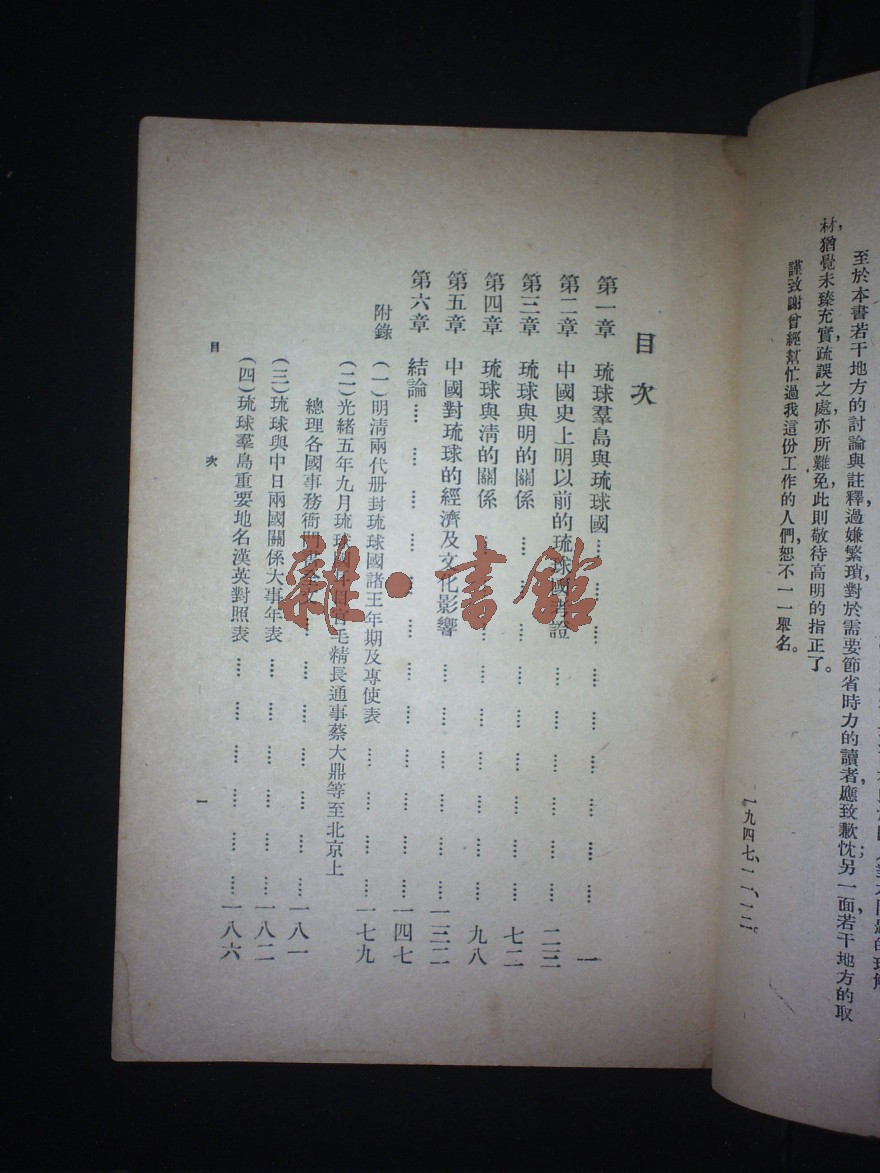 至於本書若干地方的討論與註釋過嫌繁瑣,對於需要節省時力的讀者,應致歉忱;另一面若干地方的取
材,猶覺未臻充實,疏誤之處,亦所難免,此則敬待高明的指正了。
謹致謝曾經幫忙過我這份工作的人們,恕不一一舉名。
一九四七、一一、一二。
目次
第一章 琉球羣島與琉球國 一
第二章 中國史上明以前的琉球國考證 二三
第三章 琉球與明的關係 七二
第四章 琉球與清的關係 九八
第五章 中國對琉球的經濟及文化影響 一三二
第六章 結論 一四七
附錄 (一)明清兩代册封琉球國諸王年期及專使表 一七九
(二)光緒五年九月琉球國 官毛精長通事蔡大鼎等至北京上
總理各國事務衙門 一八一
(三)琉球與中日兩國關係大事年表 一八二
(四)琉球羣島重要地名漢英對照表 一八六
目次
一
雜·書館